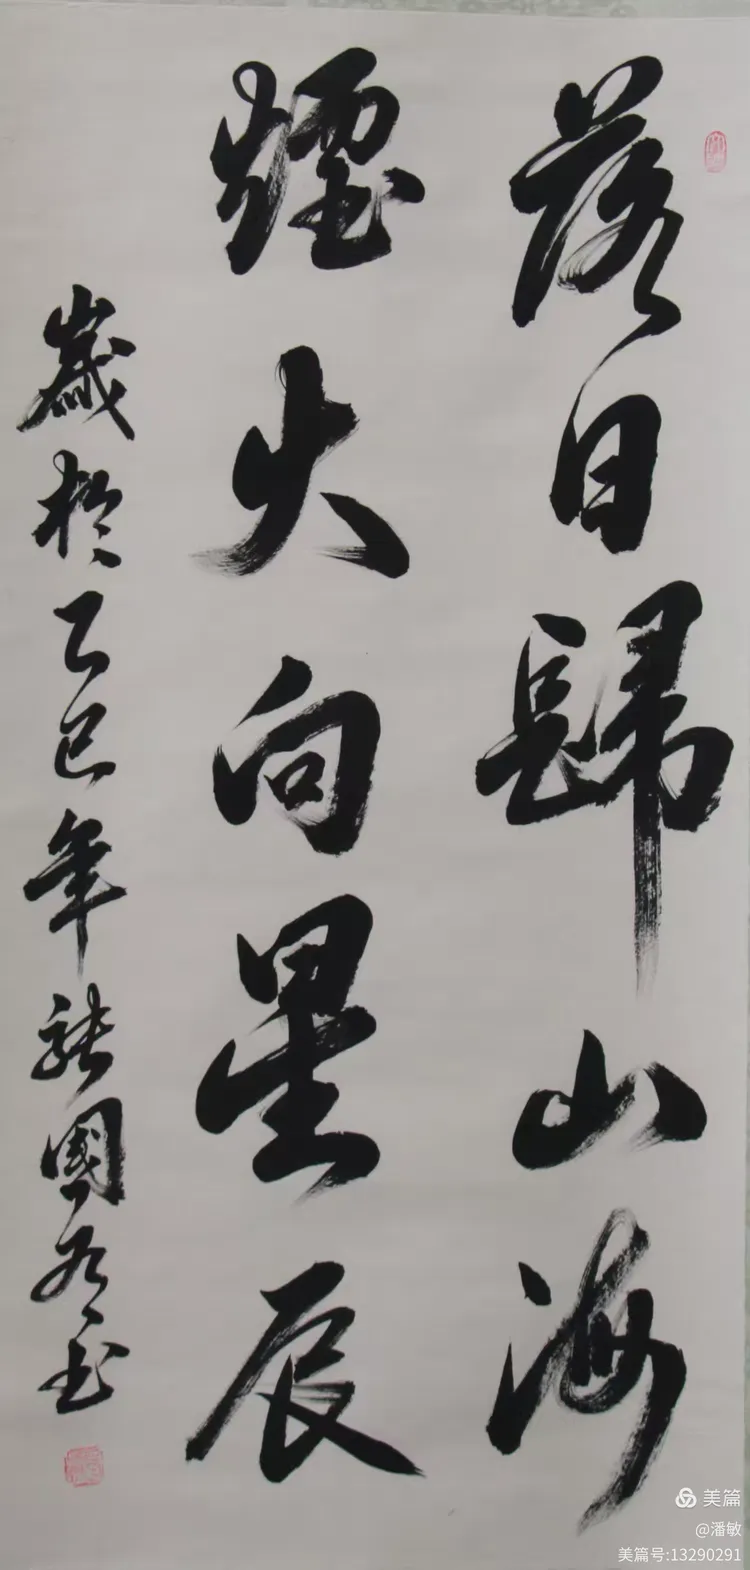 落日歸山海
煙火向星辰
歲於乙巳年 國 书
美篇
@潘敏
美篇号:13290291